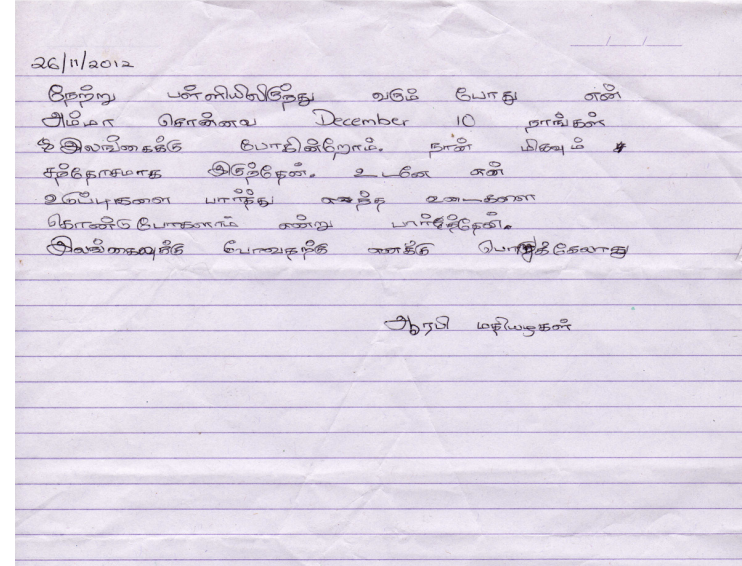 26/11/2012
நேற்று பள்ளியிலிருந்து வரும் போது என்
அம்மா சொன்னவ December 10 நாங்கள்
இலங்கைக்கு போகின்றோம். நான் மிகவும்
சந்தோசமாக இருந்தேன். உடனே என்
உடுப்புகளை பார்த்து எந்த உடைகளை
கொண்டு போகலாம் என்று பார்த்தேன்.
இலங்கைக்கு போவதற்கு எனக்கு
ஆரபி மதியழகன்